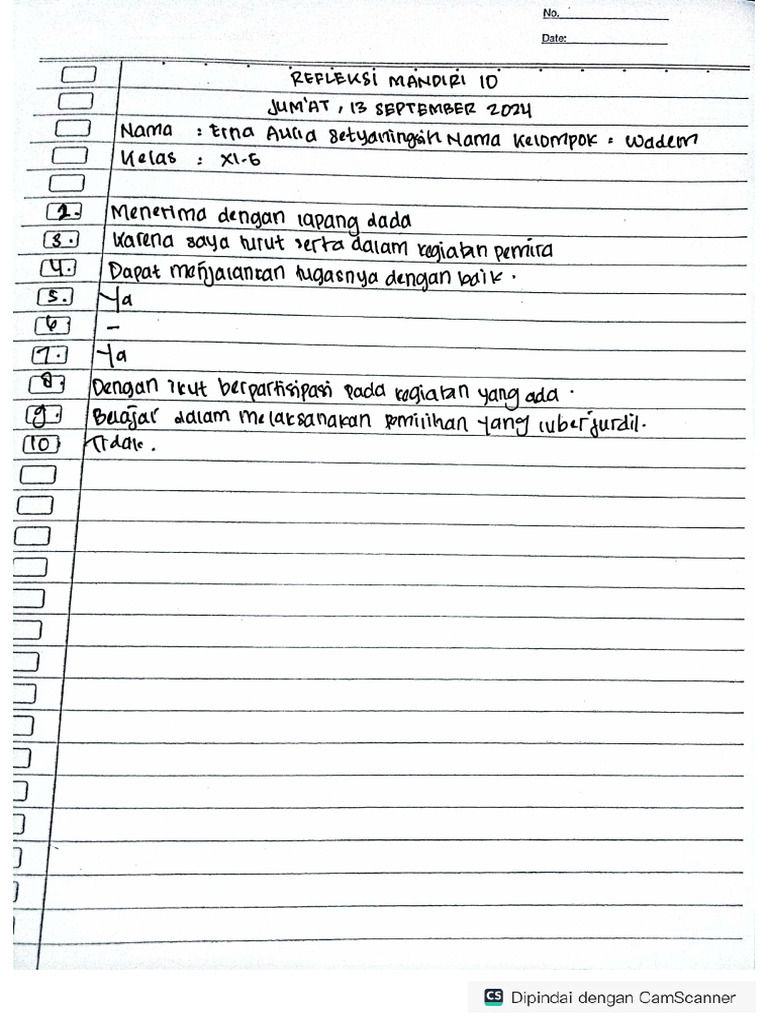 No.
Date:
REFLEKSI MANDIRI 10
JUM'AT, 13 SEPTEMBER 2024
Nama : Erna Aulia Setyaningsih Nama Kelompok : Wadem
Kelas : XI-6
2. Menerima dengan lapang dada
3. Karena saya turut serta dalam kegiatan pemira
4. Dapat menjalankan tugasnya dengan baik.
5. Ya
6 -
7. Ya
8. Dengan ikut berpartisipasi pada kegiatan yang ada.
9. Belajar dalam melaksanakan pemilihan yang luberjurdil.
10 Tidak.
CS Dipindai dengan CamScanner